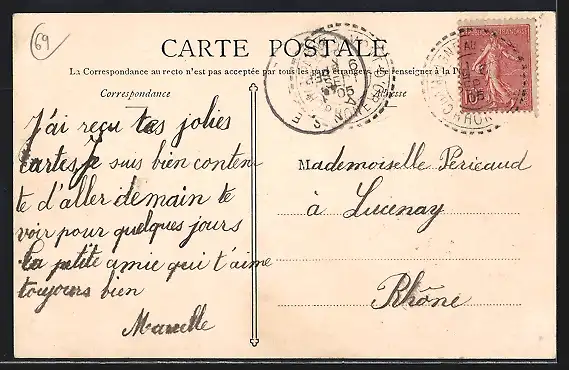 69
CARTE POSTALE
La Correspondance au recto n'est pas acceptée par tous les pays étrangers. Se renseigner à la
Correspondance
J'ai reçu tes jolies
cartes, Je suis bien conten
te d'aller demain te
voir pour quelques jours
Ta petite amie qui t'aime
toujours bien
Marcelle
Mademoiselle Péricaud
à Lucenay
Rhône